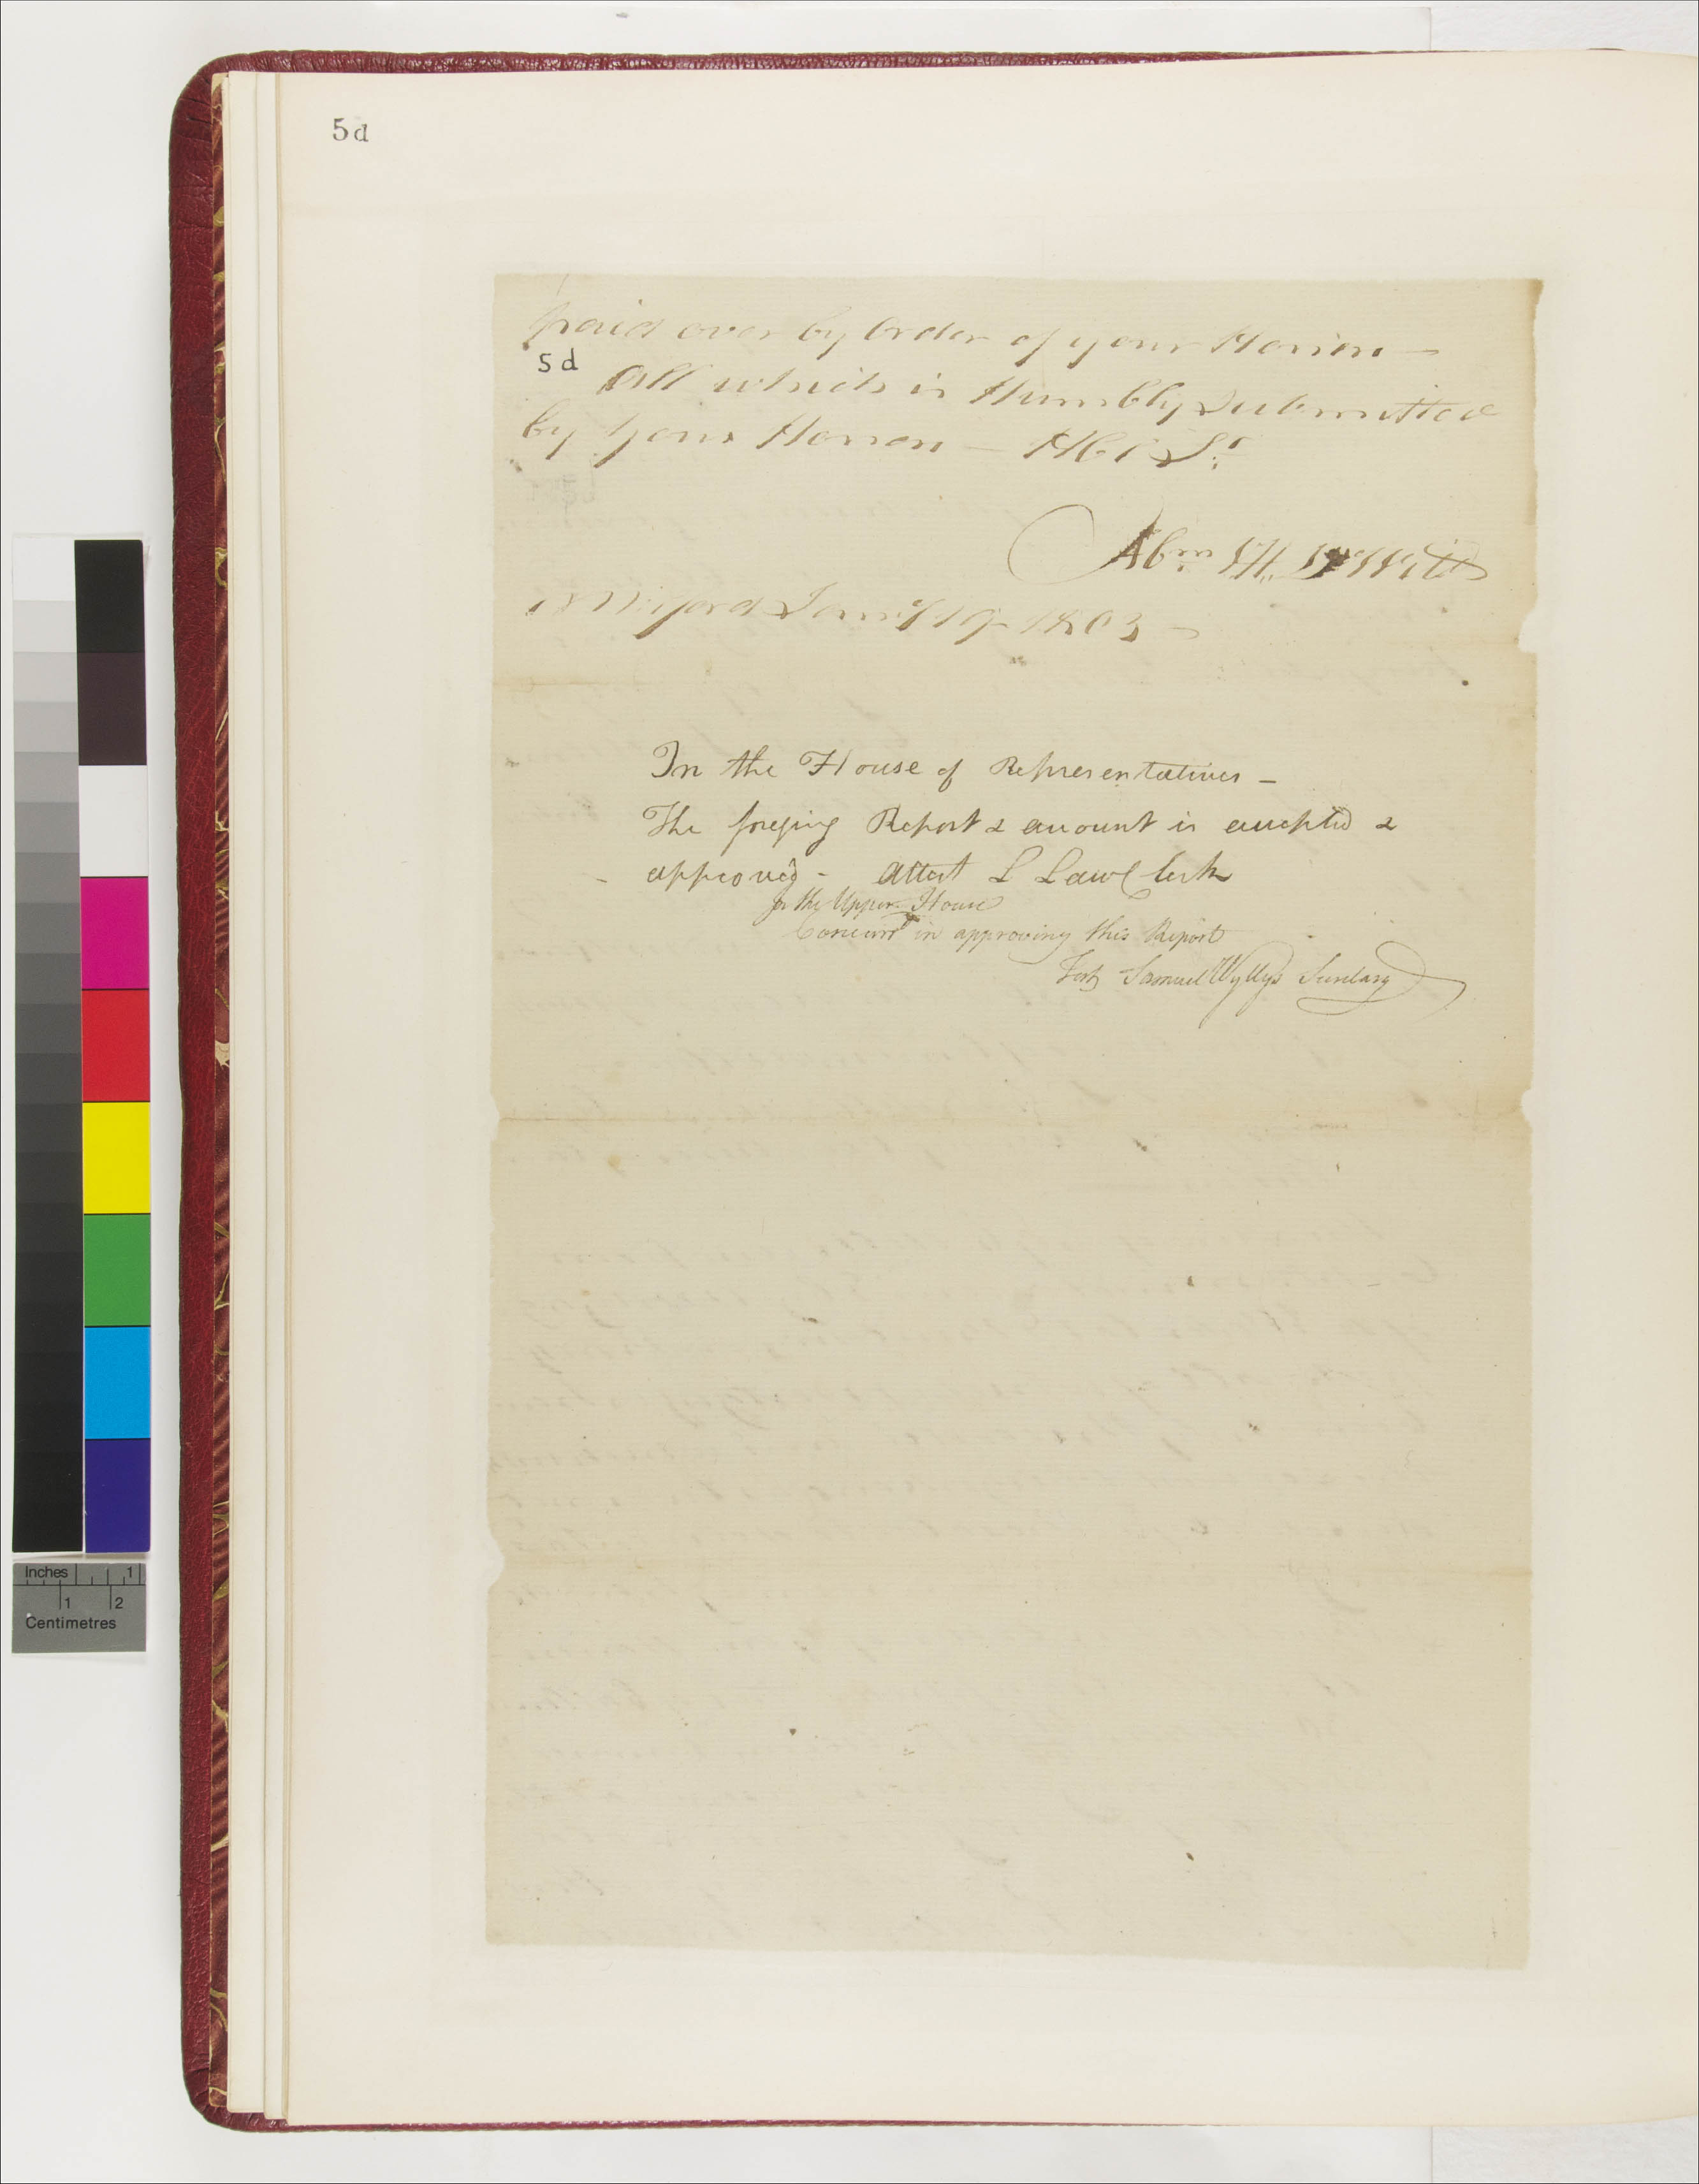 5d
paid over by Order of your Honors —
5d
All which is Humbly Submitted
by Your Honors — Hbl St
Abm V. H. DeWitt
Milford Janry 19 1803 —
In the House of Representatives —
The foregoing Report & amount is accepted &
approved - Attest L Law Clerk
In the Upper House
Concurrd in approving this Report
Test Samuel Wyllys Secretary
Inches 1
1 2
Centimetres